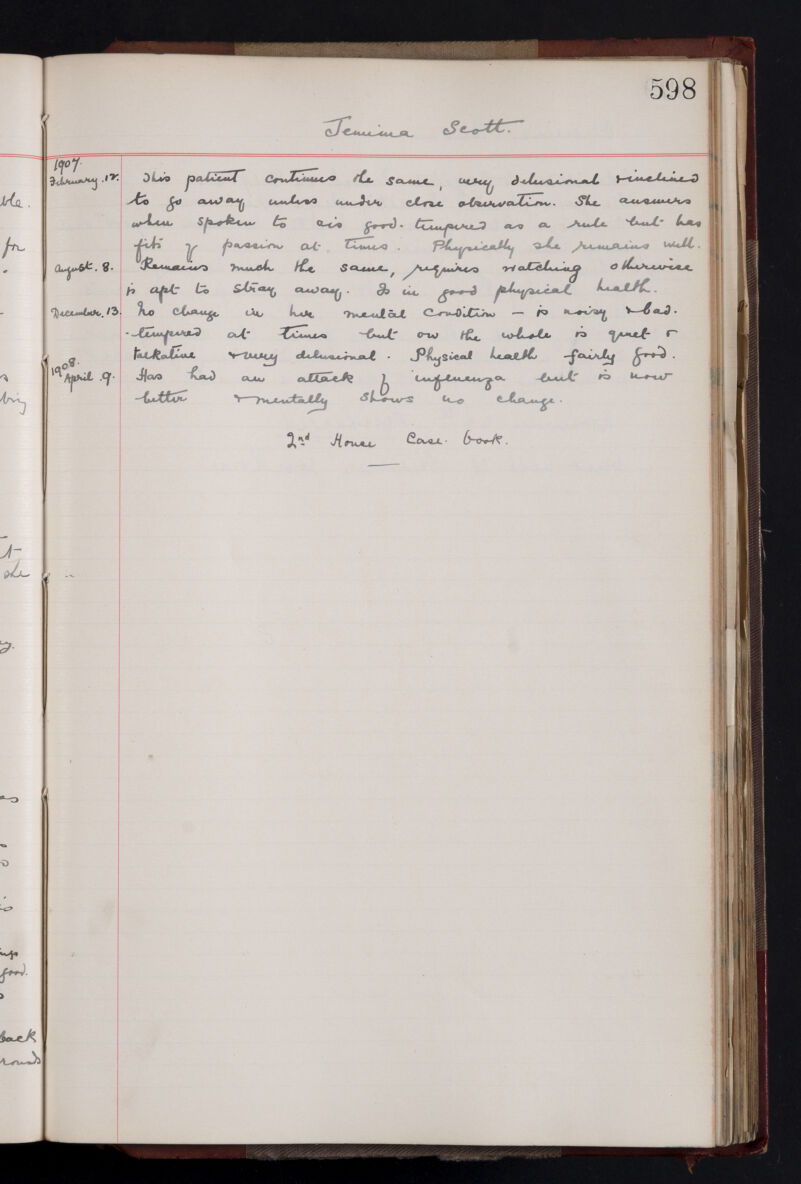 598
Jemima Scott.
1907.
February. 12. This patient continues the same, very delusional & inclined
to go away unless under close observation. She answers
when spoken to & is good-tempered as a rule but has
fits of passion at times. Physically she remains well.
August. 8. Remains much the same, requires watching otherwise
is apt to stray away. Is in good physical health.
December. 13. No change in her mental condition — is noisy & bad-
-tempered at times but on the whole is quiet &
talkative & very delusional. Physical health fairly good.
1908.
April. 9. Has had an attack of influenza but is now
better & mentally shows no change.
2nd House Case-book.
ble.
for
bring
she
good.
back
rounds